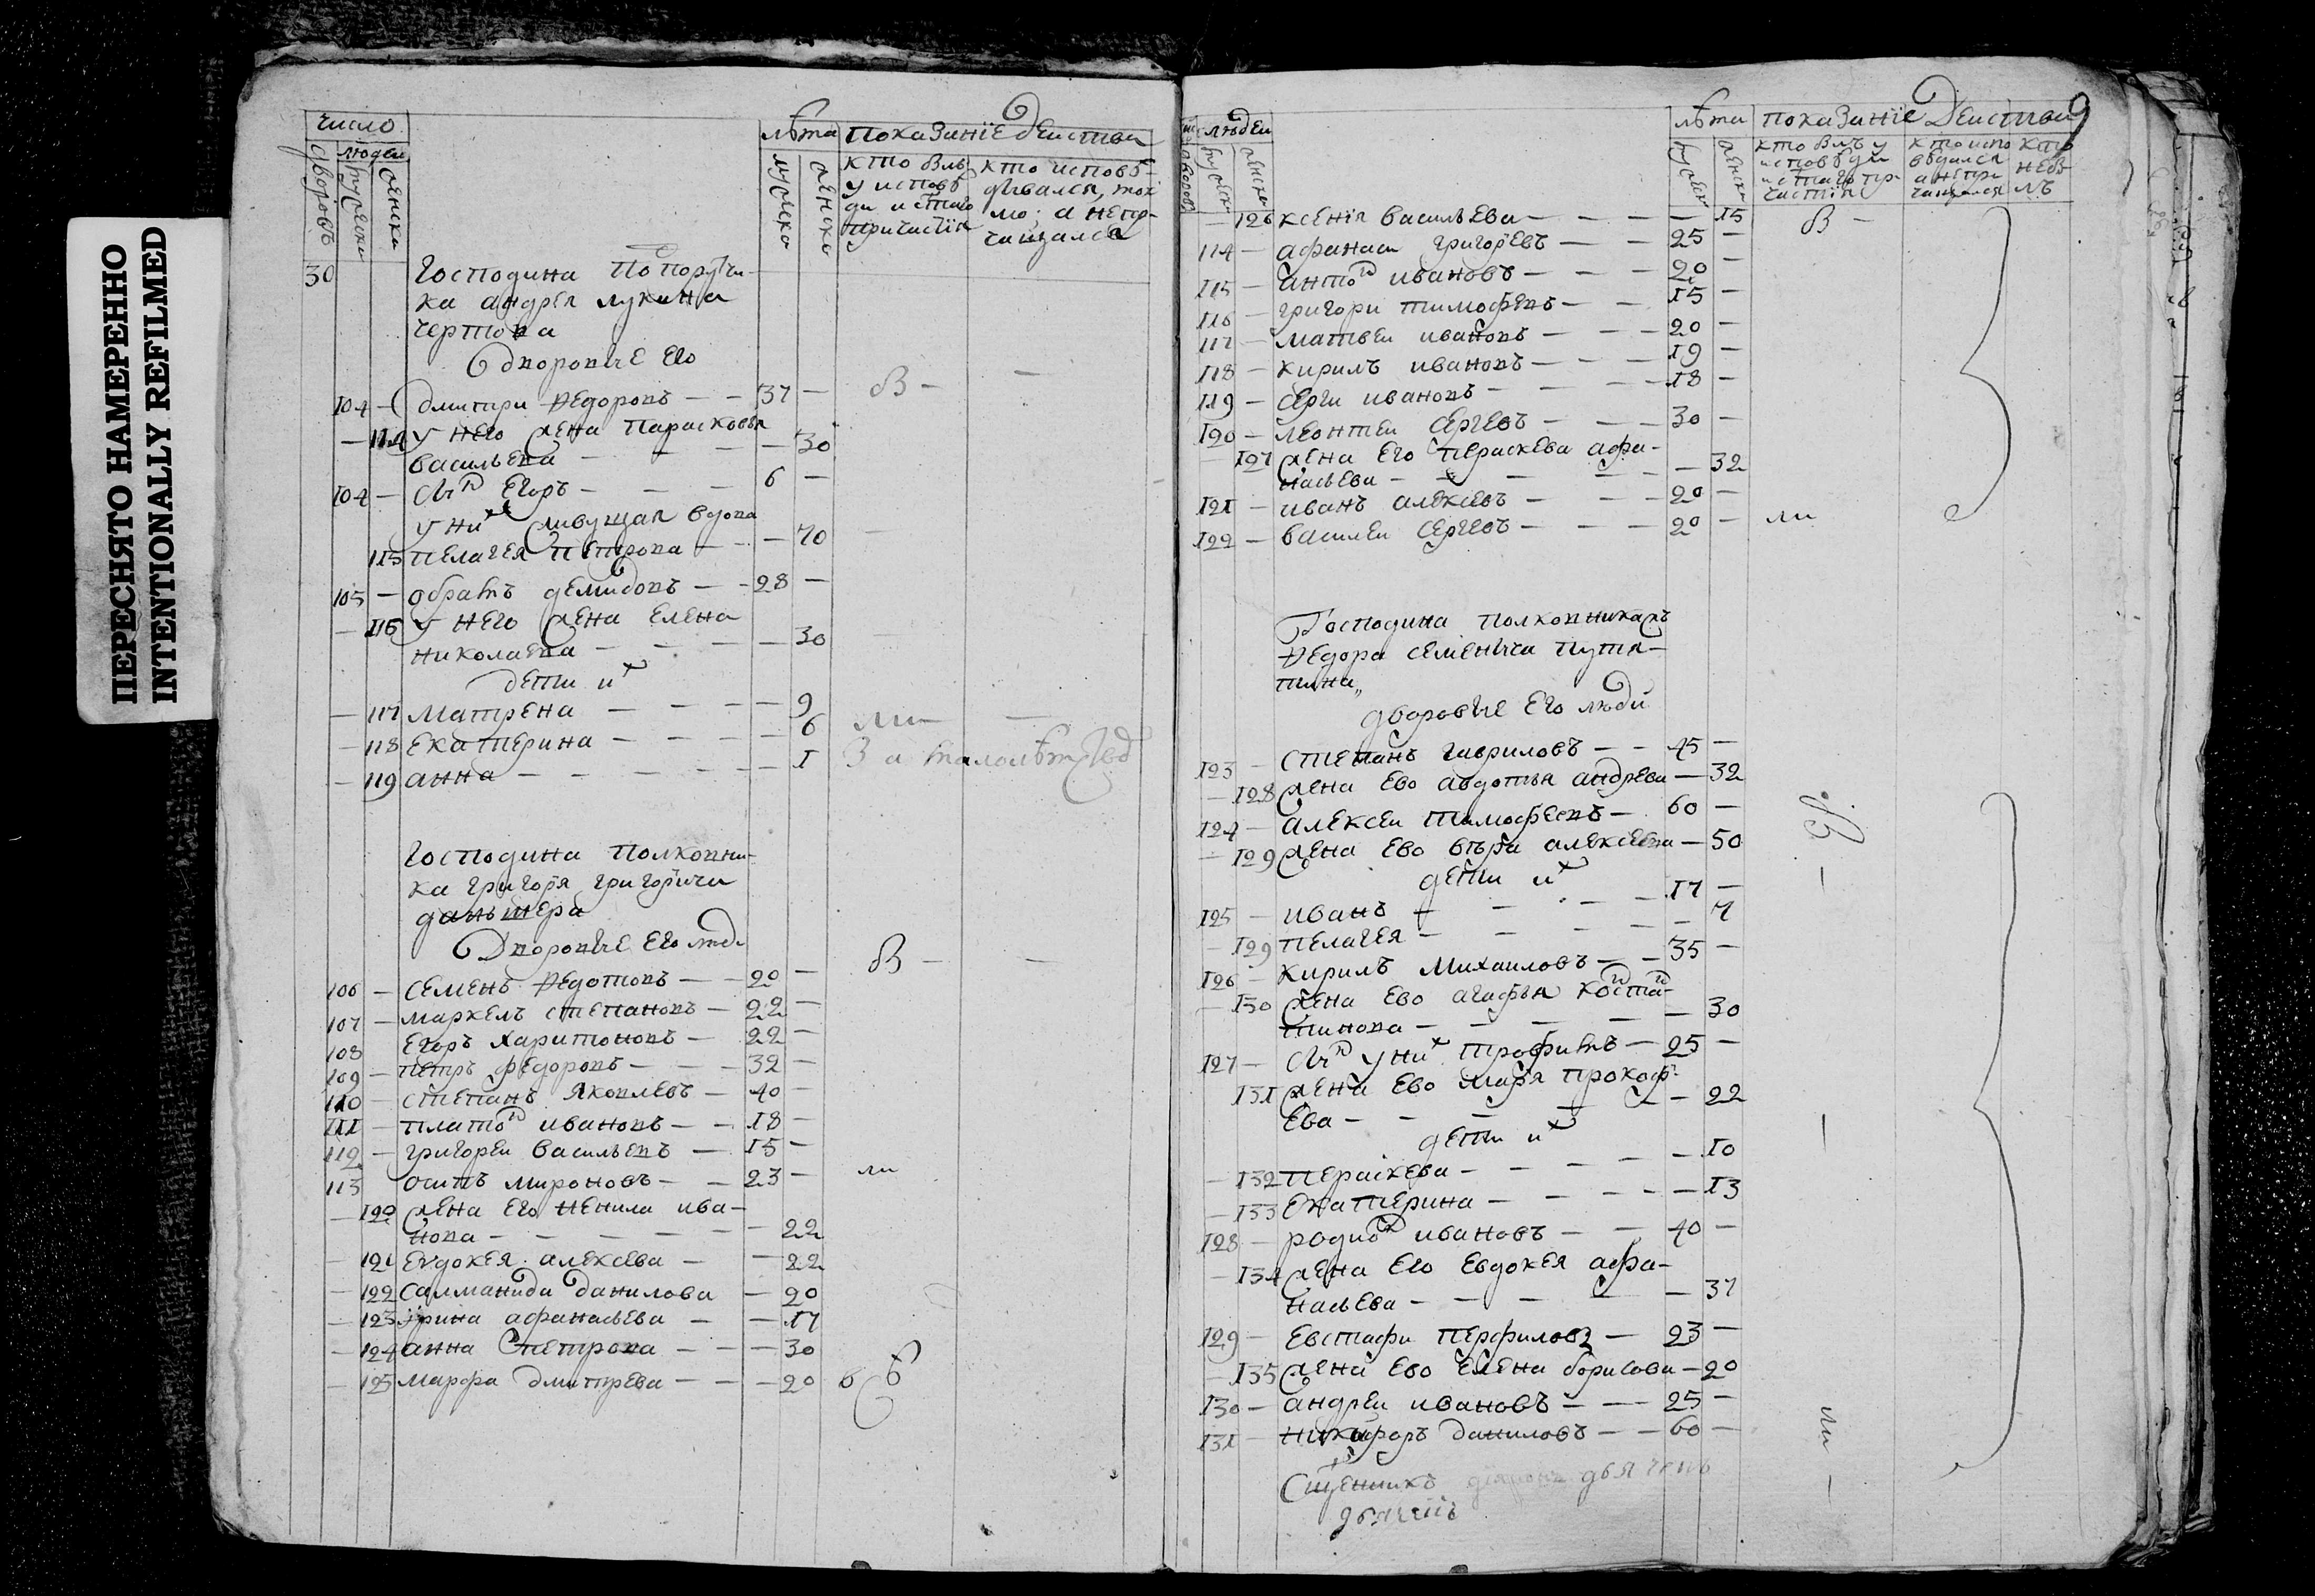 ПЕРЕСНЯТО НАМЕРЕННО
INTENTIONALLY REFILMED
число
людеи
дворовъ
мужеска
женска
лѣта
мужеска
женска
показанїе деиства
кто былъ
у исповѣ
ди и стаго
причастїя
кто исповѣ-
дывался, ток
мо: а непр-
чащался
30 Господина Попоручи-
ка андрея лукина
чертова
Дворовые его
104 — дмитри Ѳедоровъ — — 37 —
— 114 у него жена Парасковья
васильева — — — 30
104 — Сынъ Егоръ — — — 6 —
у них живущая вдова
115 пелагея петрова — — — 70
105 — обрамъ демидовъ — — 28 —
— 116 у него жена Елена
николаева — — — 30
дети их
— 117 Матрена — — — — 9
— 118 Екатерина — — — — 6
— 119 анна — — — — — 1
За малолѣтствоᲨ
Господина полковни-
ка григоря григорича
даньшера
Дворовые его люд.
106 — Семенъ Ѳедотовъ — — 20 —
107 — маркелъ степановъ — 22 —
108 Егоръ Харитоновъ — 22 —
109 — петръ федоровъ — — 32 —
110 — степанъ Яковлевъ — 40 —
111 — платонъ ивановъ — — 18 —
112 — григореи васильевъ — 15 —
113 осипъ мироновъ — — 23 —
— 120 жена его ненила ива-
нова — — — — — 22
— 121 Евдокея алексѣева — — 22
— 122 Салманида данилова — 20
— 123 їрина афанасьева — — 17
— 124 анна петрова — — — 30
— 125 марфа дмитрева — — — 20
дворовъ
людеи
мужеска
женска
лѣта
мужеска
женска
показанїе Деиства
9
кто былъ у
исповѣди
и стаго пр-
частїя
кто испо
вѣдался
а непри
чащался
кто
неб
лъ
— 126 ксенїя васильева — — — — 15
114 — афанаси григорьевъ — — 25 —
115 — антонъ ивановъ — — — 20 —
116 — григори тимофѣевъ — — 15 —
117 — матвеи ивановъ — — — 20 —
118 — кирилъ ивановъ — — — 19 —
119 — серги ивановъ — — — 18 —
120 — леонтеи сергѣевъ — — — 30 —
— 127 жена его пераскева афа-
насьева — — — — — 32
121 — иванъ алексѣевъ — — — 20 —
122 — василеи сергѣевъ — — — 20 —
Господина полковника къ
Ѳедора семеныча путя-
тина„
дворовые его люди
123 — степанъ гавриловъ — — 45 —
— 128 жена ево авдотья андрева — 32
124 — алексеи тимофеевъ — 60 —
— 129 жена ево вѣра алексеева — 50
дети их
125 — иванъ — — — — 17 —
— 129 пелагея — — — — — 7
126 — кирилъ михаиловъ — — 35 —
— 130 жена ево агафья коста-
тинова — — — — — 30
127 — Сынъ у них трофимъ — 25 —
131 жена ево маря прокоф-
ева — — — — — 22
дети их
— 132 пераскева — — — — — 10
— 133 Екатерина — — — — — 13
128 — родионъ ивановъ — — 40 —
— 134 жена его евдокея афа-
насьева — — — — — 37
129 — Евстафи перфиловъ — 23 —
— 135 жена ево елена борисова — 20
130 — андреи ивановъ — — — 25 —
131 — никифоръ даниловъ — — 60 —
Сщенникъ дїяконъ дьячекъ